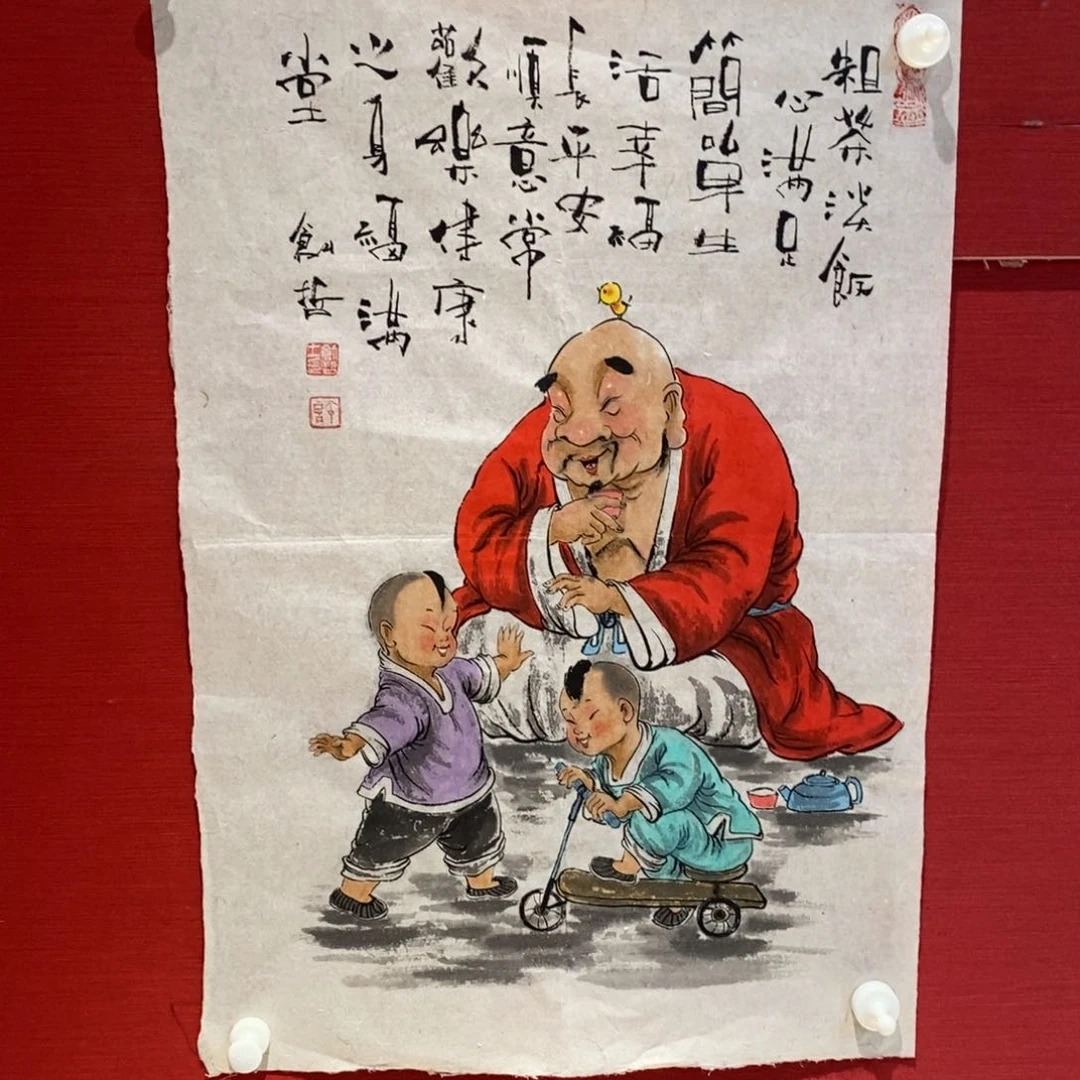 粗茶淡飯
心滿足
簡單生
活幸福
長平安
順意常
歡樂健康
心身福滿
堂
創哲